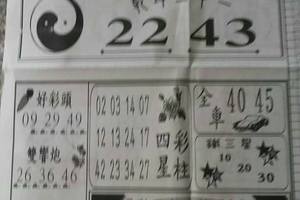 22 43
好彩頭
09 29 49
雙響炮
26 36 46
02 03 14 07
12 13 24 17
42 23 34 27
四彩
星柱
全車
40 45
鐵三星
10
20
30